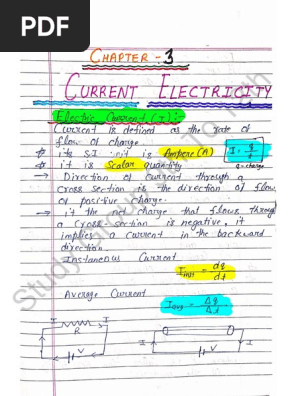 PDF
CHAPTER - 3
CURRENT ELECTRICITY
Electric Current (I):
Current is defined as the rate of
flow of charge.
its S.I unit is Ampere (A)
I = q/t
q = charge
it is Scalar quantity
→ Direction of current through a
cross section is the direction of flow
of positive charge.
→ if the net charge that flows through
a cross section is negative, it
implies a current in the backward
direction
Instaneous Current
I inst = dq/dt
Average Current
I avg = Δq/Δt
I I
R
V
I I
V